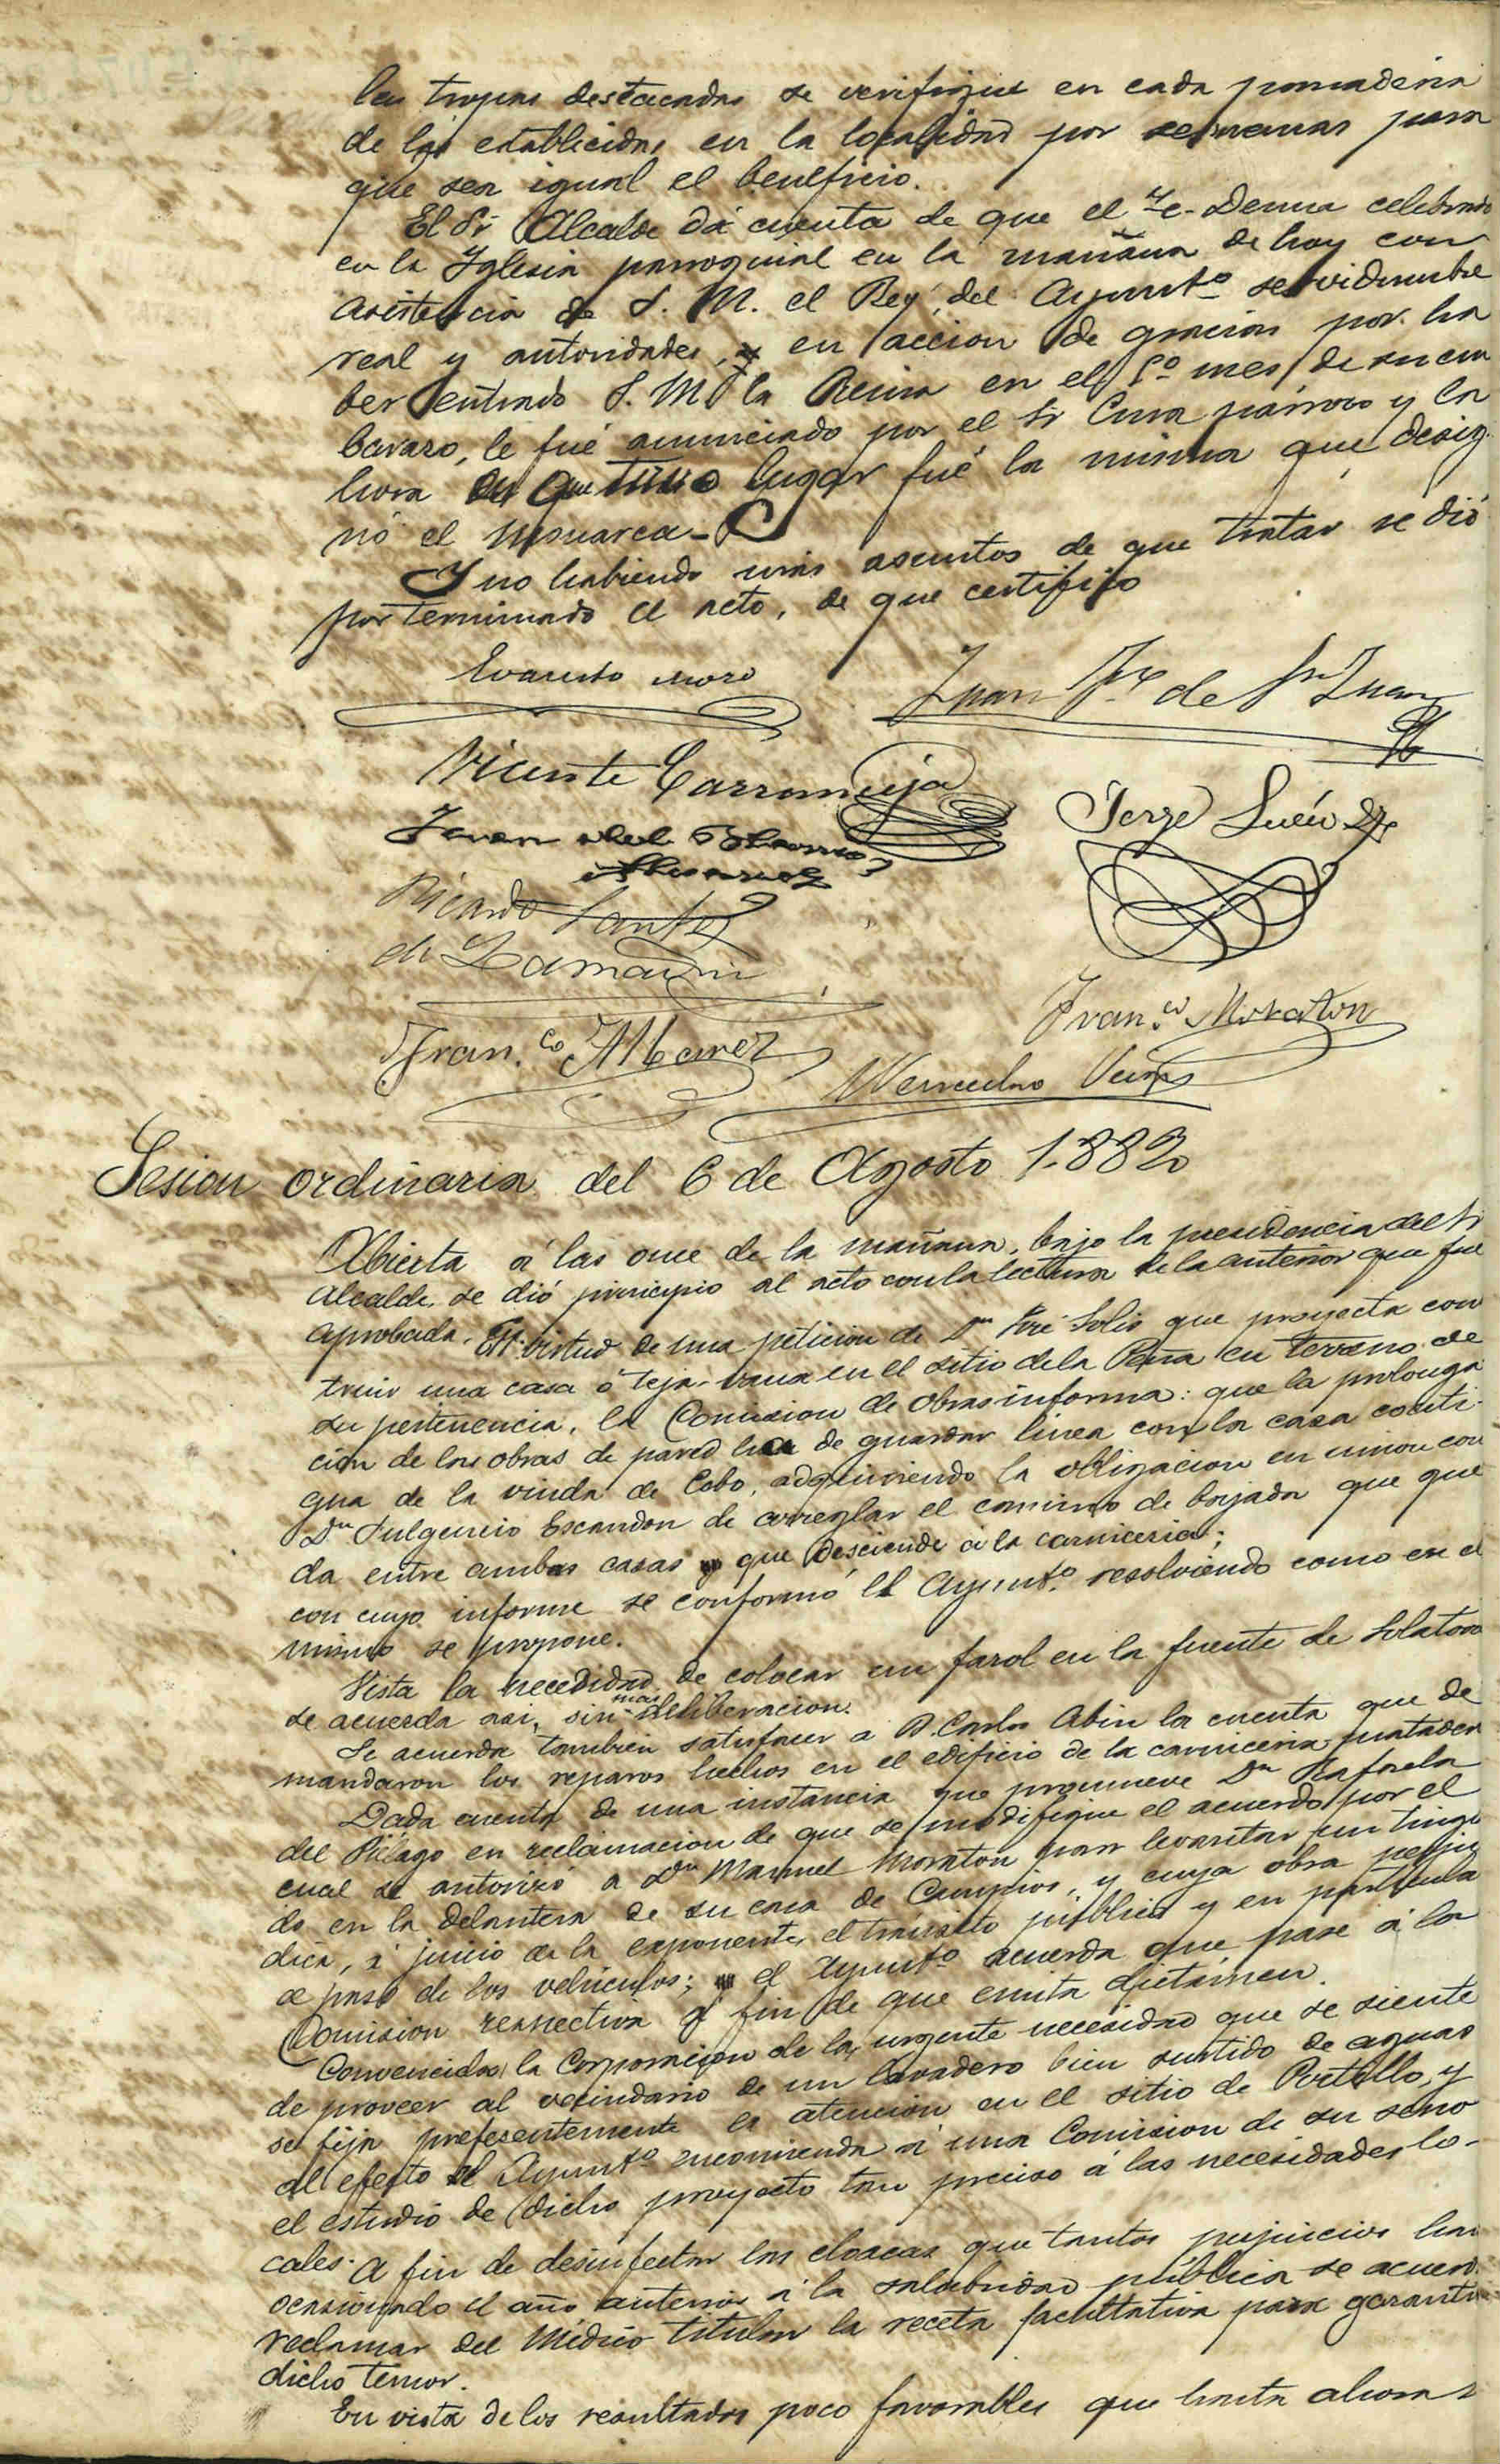 las tropas destacadas se verifique en cada panaderia
de las establecidas en la localidad por semanas para
que sea igual el beneficio.
El Sr. Alcalde dá cuenta de que el Te-Deum celebrado
en la Iglesia parroquial en la mañana de hoy con
asistencia de S. M. el Rey, del Ayunto servidumbre
real y autoridades, en accion de gracias por ha
ber entrado S. M. la Reina en el 5º mes de su em
barazo, le fué anunciado por el Sr Cura párroco y la
hora en que tuvo lugar fué la misma que desig-
nó el Monarca.
Y no habiendo más asuntos de que tratar se dió
por terminado el acto, de que certifico
Evaristo Moro
Juan de Sn Juan
Vicente
Jorge
Juan del
Ricardo Santos
de
Franco Moraton
Fran.co Alvarez
Wenceslao
Sesion ordinaria del 6 de Agosto 1.882
Abierta á las once de la mañana, bajo la presidencia del Sr
Alcalde, se dió principio al acto con la lectura de la anterior que fue
aprobada. En virtud de una petición de Dn José Solis que proyecta cons
truir una casa ó teja-vana en el sitio de la Peña en terreno de
su pertenencia, la Comision de obras informa: que la prolonga
cion de las obras de pared ha de guardar linea con la casa conti-
gua de la viuda de Cobo, adquiriendo la obligacion en union con
Dn Fulgencio Escandon de arreglar el camino de bajada que que
da entre ambas casas y que desciende á la carniceria;
con cuyo informe se conformó el Ayunto resolviendo como en el
mismo se propone.
Vista la necesidad de colocar un farol en la fuente de Solatorre
se acuerda asi, sin mas deliberacion.
Se acuerda tambien satisfacer a D. Carlos Abin la cuenta que de
mandaron los reparos hechos en el edificio de la carniceria matadero
Dada cuenta de una instancia que promueve Dn Rafaela
del Piélago en reclamacion de que se modifique el acuerdo por el
cual se autorizó a Dn Manuel Moraton para levantar un tingla
do en la delantera de su casa de Campios, y cuya obra perju
dica, á juicio de la exponente, el transito público y en particula
el paso de los vehiculos; el Ayunto acuerda que pase á la
Comision respectiva á fin de que emita dictámen.
Convencida la Corporacion de la urgente necesidad que se siente
de proveer al vecindario de un lavadero bien surtido de aguas
se fija preferentemente la atencion en el sitio de Portillo, y
al efecto el Ayunto encomienda á una Comision de su seno
el estudio de dicho proyecto tan preciso á las necesidades lo-
cales. A fin de desinfectar las cloacas que tantos perjuicios han
ocasionado el año anterior á la salubridad pública se acuerda
reclamar del Médico titular la receta facultativa para garantir
dicho temor.
En vista de los resultados poco favorables que hasta ahora